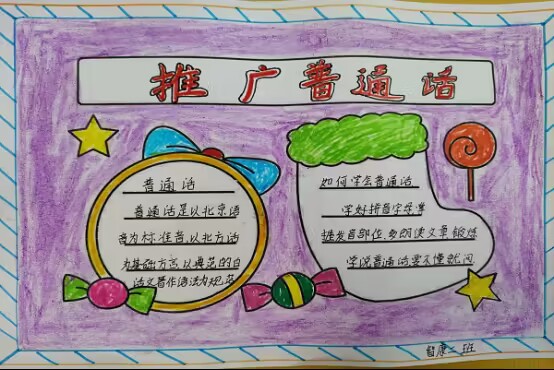 推广普通话
普通话
普通话是以北京语
音为标准音,以北方话
为基础方言,以典范的白
话文著作语法为规范
如何学会普通话
学好拼音字母掌
握发音部位,多朗读文章锻炼
学说普通话要不懂就问
智康二班